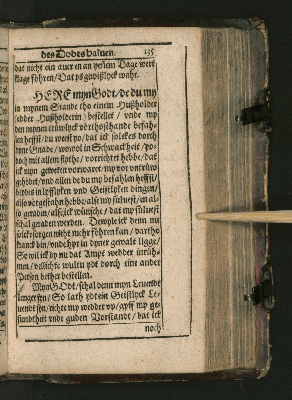 des Dodes haluen. 135
dat nicht ein auer en an dessem Dage wert
klage föhren / Dat ys gewißlyck wahr.
HERE myn Godt / de du my
in mynem Stande tho einem Hußholder
(edder Hußholderin) bestellet / vnde my
den mynen trüwlyck vörthostahnde befah-
len heffst / du weest yo / dat ick solckes dorch
dyne Gnade / wowol in Schwackheit / yo-
doch mit allem flythe / vorrichtet hebbe / dat
ick myn geweten vorwaret / my vor vntrüw
gehödet / vnd allen de du my befahlen heffst /
beydes in lyfflyken vnd Geistlyken dingen /
also vörgestahn hebbe / alse my süluest / en al-
so geraden / alse ick wünsche / dat my süluest
schal geraden werden. Dewyle ick denn nu
solck sorgen nicht mehr föhren kan / dartho
kranck bin / vnde hyr in dyner gewalt ligge /
So wil ick dy nu dat Ampt wedder inrüh-
men / du wult ydt dorch eine ander
Person bether bestellen.
Myn GOdt / schal denn myn Leuendt
lenger syn / So lath ydt ein Geistlyck Le-
uendt syn / richte my wedder vp / gyff my ge-
sundtheit vnde guden Vorstandt / dat ick
noch